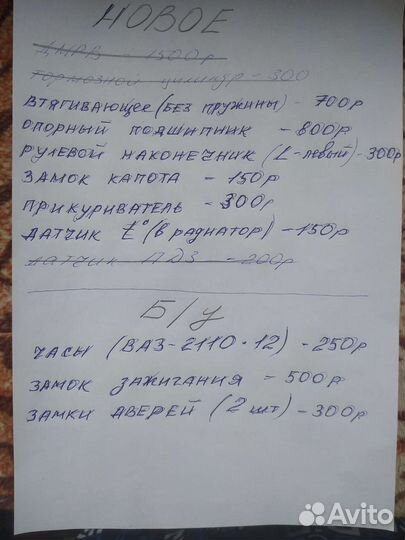 НОВОЕ
ДМРВ - 1500р
тормозной цилиндр - 300
втягивающее (без пружины) - 700р
опорный подшипник - 800р
рулевой наконечник (L-левый) - 300р
замок капота - 150р
прикуриватель - 300р
датчик t° (в радиатор) - 150р
датчик ПДЗ - 200р
Б/у
часы (ВАЗ-2110-12) - 250р
замок зажигания - 500р
замки дверей (2 шт) - 300р
Avito